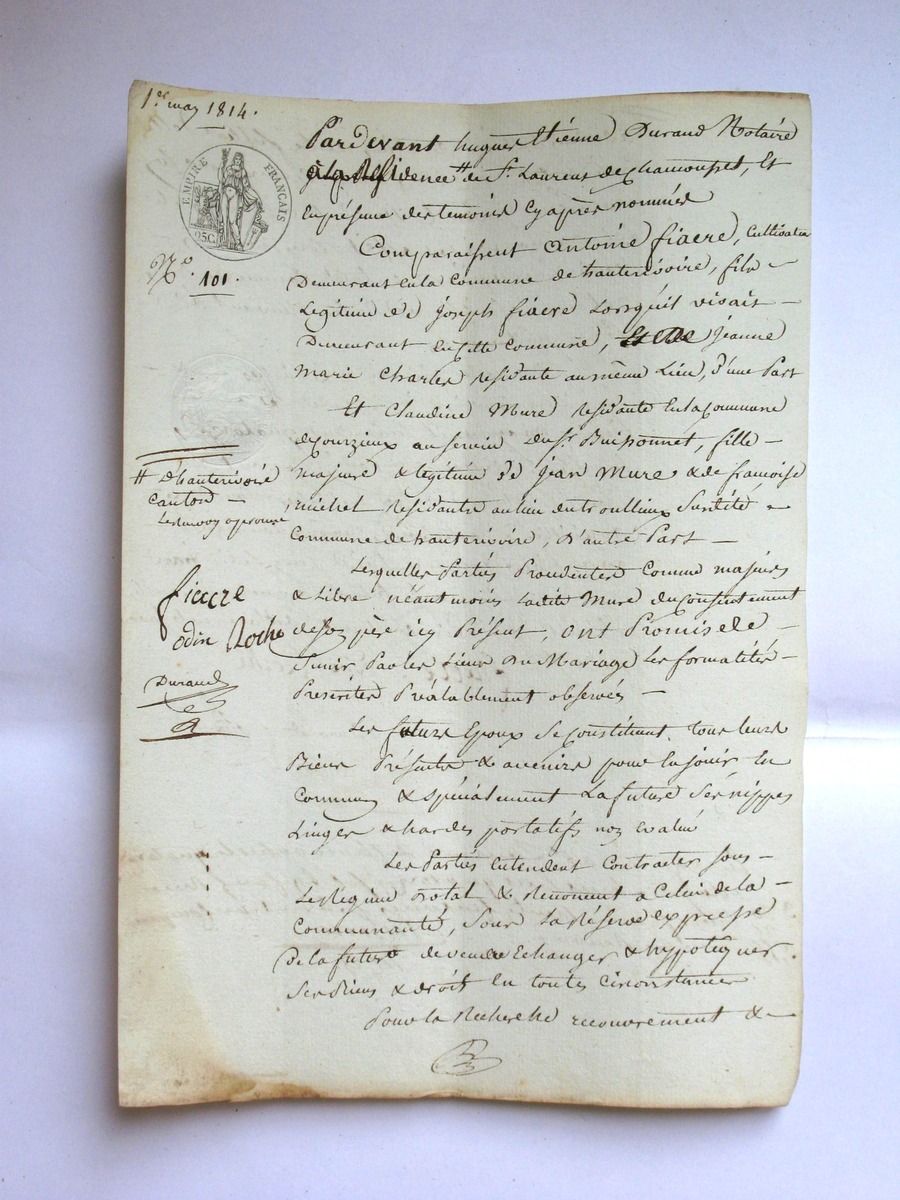 1er may 1814.
EMPIRE FRANÇAIS
25C
No.
101.
Pardevant hugues Etienne Durand Notaire
à la Résidence # de St. Laurent de Chamousset, Et
En présence des temoins Cy après nommés
Comparaissent antoine fiacre, Cultivateur
Demeurant En la Commune de hauterivoire, fils
Legitime de Joseph fiacre Lorsqu'il vivait
Demeurant En cette Commune, Et de Jeanne
marie Charles residante au même Lieu, d'une Part
Et Claudine Mure residante En la Commune
de Courzieux au service du Sr. Buissonnet, fille
majeure & legitime de Jean Mure & de francoise
michel residants au lieu du troullieux Susdite
Commune de hauterivoire, d'autre Part
Lesquelles Parties Procedentes Comme majeures
& Libre néantmoins Ladite Mure du Consentement
de son père icy Présent, ont Promis de
S'unir Par les Liens du Mariage Les formalités
Prescrites Préalablement observées
Les futurs Epoux Se Constituent, tous leurs
Biens Présents & avenirs pour En jouir En
Commun & spécialement La future Ses nippes
Linges & hardes portatifs non evalué
Les Parties Entendent Contracter sous
Le Regime Dotal & Renoncent a Celui de la
Communauté, Sous La Réserve expresse
De la future de vendre Echanger & hypotequer
Ses Biens & droit En toutes Circonstances
Pour la Recherche recouvrement &
# d'hauterivoire
canton
fiacre
odin Roche
Durand